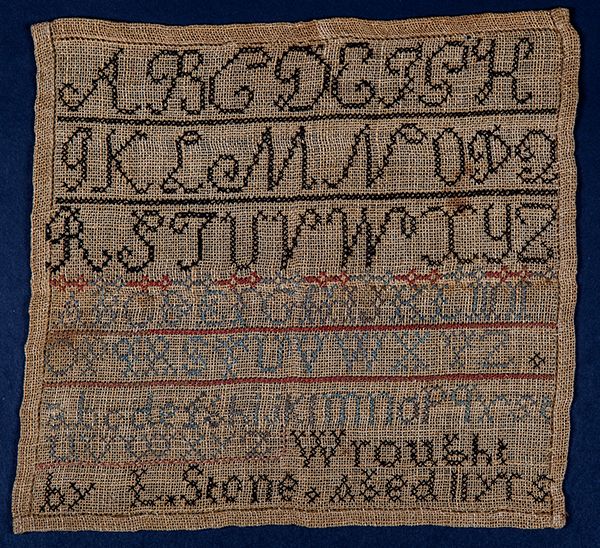 A B C D E F G H
I K L M N O P Q
R S T U V W X Y Z
A B C D E F G H I J K L M N
O P Q R S T U V W X Y Z .
a b c d e f g h i j k l m n o p q r s t
u v w x y z Wrought
by L. Stone. Aged 11 yrs